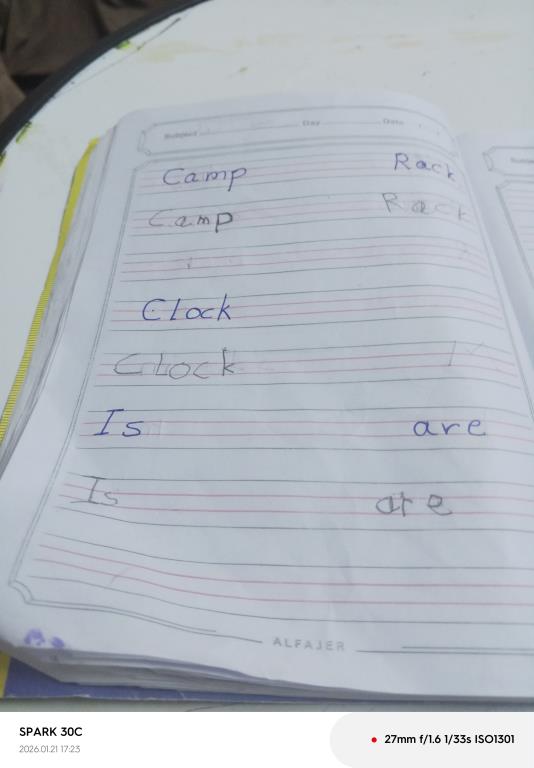 Subject Day Date
Camp Rack
Camp Rack
Clock
Clock
Is are
Is are
ALFAJER
SPARK 30C
2026.01.21 17:23
27mm f/1.6 1/33s ISO1301